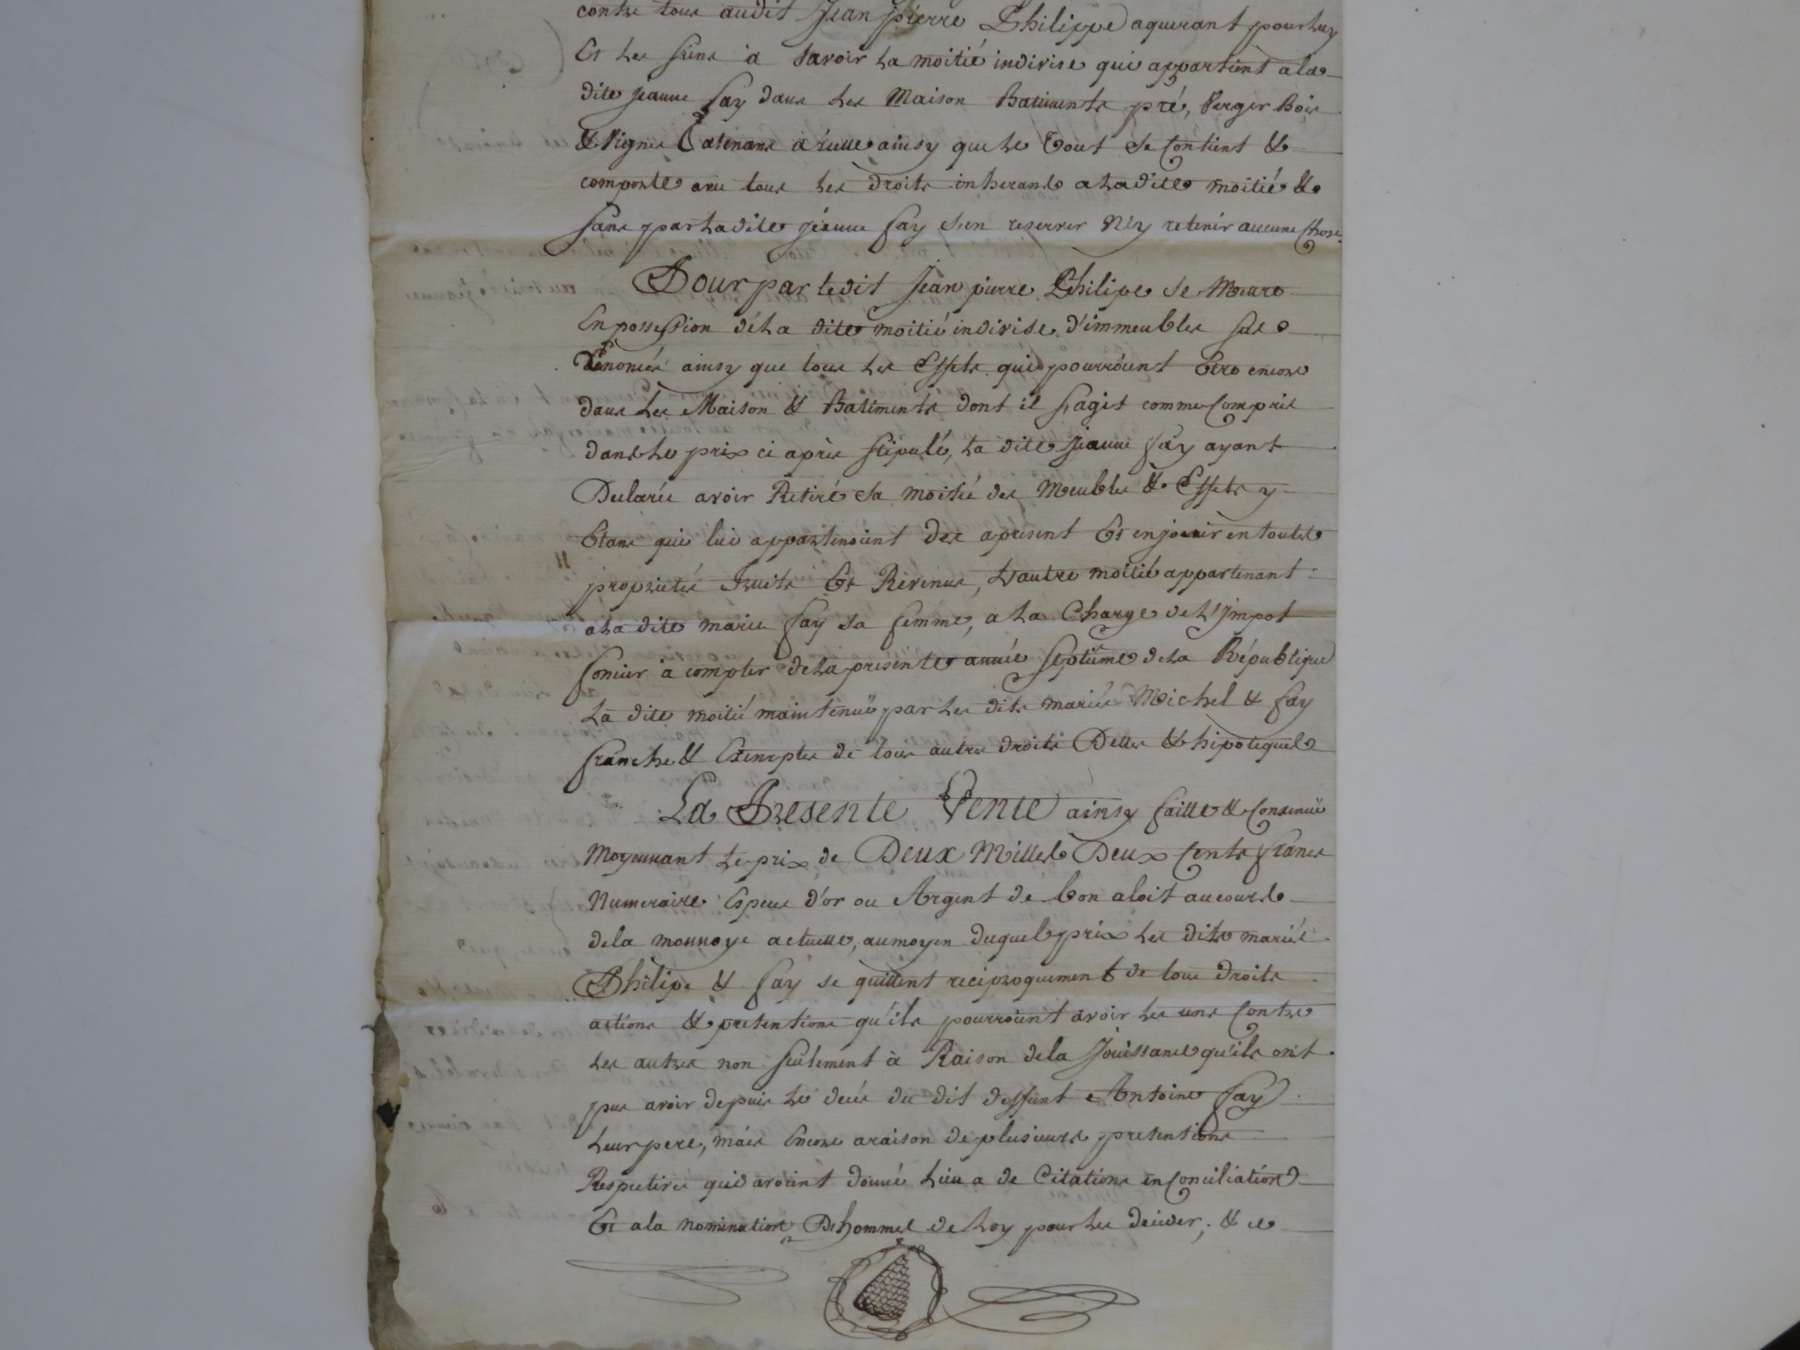 contre tous audit Jean Pierre Philippe aquerant pour luy
Et les siens à savoir la moitié indivise qui appartient a la
dite jeanne fay dans les Maison Batiments pré, Verger Bois
& Vignes attenans à icelle ainsy que le Tout se Contient &
comporte avec tous les droits inherans a la dite moitié &
sans par la dite jeanne fay s'en reserver N'y retenir aucune Chose.
Pour par ledit Jean pierre Philipe se Mettre
En possession dé la dite moitié indivise d'immeubles sus
Enoncés ainsy que tous les Effets qui pourroient Etre encore
dans les Maison & Batiments dont il s'agit comme Compris
dans le prix ci après stipulé, la dite jeanne fay ayant
Declarée avoir Retiré sa moitié des Meubles & Effets y
Etans qui lui appartenoient des apresent Et en jouir en toutte
proprietés fruits Et Revenus, L'autre moitié appartenant
a la dite marie fay sa femme, a la Charge de L'Impot
foncier à compter de la presente année septieme de la République
La dite moitié maintenuë par les dits mariés Michel & fay
franche & Exempte de tous autres droits Dettes & hipoteques
La Presente Vente ainsy faitte & Convenuë
Moyennant le prix de Deux Milles Deux Cents francs
Numeraire Especes d'or ou Argent de bon aloit au cours
de la monnoye actuelle, au moyen duquel prix les dits mariés
Philipe & fay se quittent reciproquement de tous droits
actions & pretentions qu'ils pourroient avoir les uns Contre
les autres non seulement à Raison de la Jouissance qu'ils ont
pus avoir depuis le decés du dit deffunt Antoine fay
leur pere, mais Encore a raison de plusieurs pretentions
Respectives qui avoient donné Lieu a de Citations en Conciliation
Et a la nomination D'hommes de Loy pour les decider, & ce